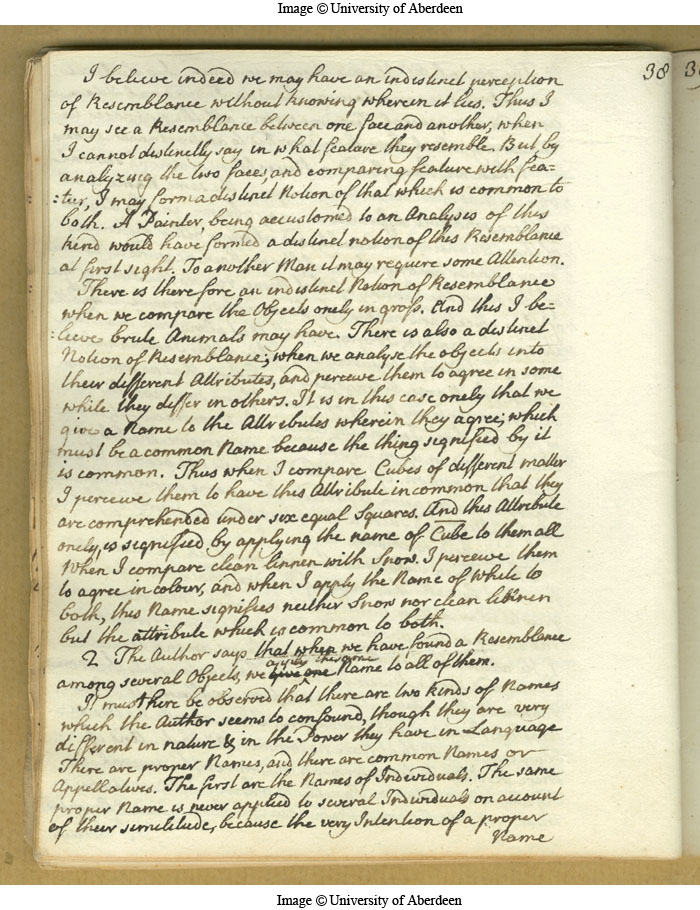 Image © University of Aberdeen
38
I believe indeed we may have an indistinct perception
of Resemblance without knowing wherein it lies. Thus I
may see a Resemblance between one face and another, when
I cannot distinctly say in what feature they resemble. But by
analyzing the two faces, and comparing feature with fea-
:ture, I may form a distinct Notion of that which is common to
both. A Painter, being accustomed to an Analysis of this
kind would have formed a distinct notion of this Resemblance
at first sight. To another Man it may require some Attention.
There is therefore an indistinct Notion of Resemblance
when we compare the Objects onely in gross. And this I be-
:lieve brute Animals may have. There is also a distinct
Notion of Resemblance, when we analyse the objects into
their different Attributes, and perceive them to agree in some
while they differ in others. It is in this case onely that we
give a Name to the Attributes wherein they agree, which
must be a common Name because the thing signified by it
is common. Thus when I compare Cubes of different matter
I perceive them to have this Attribute in common that they
are comprehended under six equal Squares. And this Attribute
onely, is signified by applying the name of Cube to them all
When I compare clean linnen with Snow. I perceive them
to agree in colour, and when I apply the Name of White to
both, this Name signifies neither Snow nor clean linnen
but the attribute which is common to both.
2 The Author says that when we have found a Resemblance
among several Objects, we give one apply the same Name to all of them.
It must here be observed that there are two kinds of Names
which the Author seems to confound, though they are very
different in nature & in the Power they have in Language
There are proper Names, and there are common Names or
Appellatives. The first are the Names of Individuals. The same
proper Name is never applied to several Individuals on account
of their similitude, because the very Intention of a proper
Name
Image © University of Aberdeen